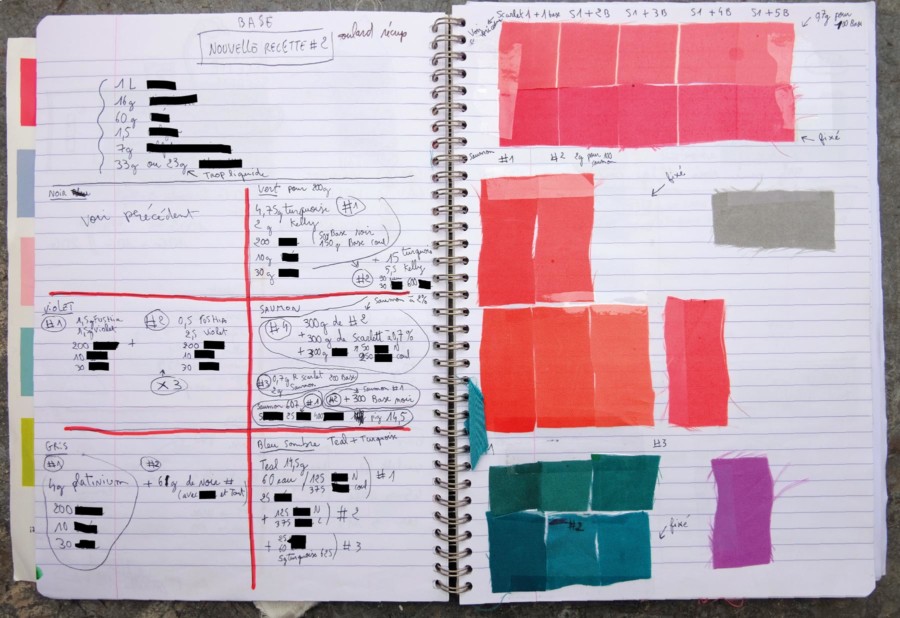 BASE
NOUVELLE RECETTE #2
foulard récup
1 L
16 g
60 g
1,5
7g
33g ou 23g
Trop liquide
NOIR
Voir précédent
Vert pour 200g
4,75g turquoise #1
2 g Kelly
200
10g
30 g
50g Base noir
150 g Base coul
+ 15 turquoise
5,5 Kelly
#2
30
30 600
VIOLET
#1 1,5g Fushia
1,5g violet
200
10
30
+
#2 0,5 Fushia
2,5 violet
200
10
30
x 3
SAUMON
Saumon à 2%
#4 300g de #2
+ 300g de Scarlett à 1,7 %
+ 300g 50 N
250 coul
#3 0,7g R Scarlet 100 Base
2g Saumon
Saumon #1
Saumon 607 #1 #2 + 300 Base noir
5 25 400 pig 14,5
GRIS
#1
4g platinium
200
10
30
#2
+ 61g de Noir #
(avec et tout)
Bleu Sombre Teal + Turquoise
Teal 14,5g
60 eau 125 N
375 coul #1
25
+ 125 N
375 C #2
+ 25
60
5g turquoise 625 #3
Scarlet 1 + 1 base S1 + 2B S1 + 3B S1 + 4B S1 + 5B
0,7g pour 100 Base
fixé
Saumon #1 #2 2g pour 100 saumon
fixé
#3
#2
fixé